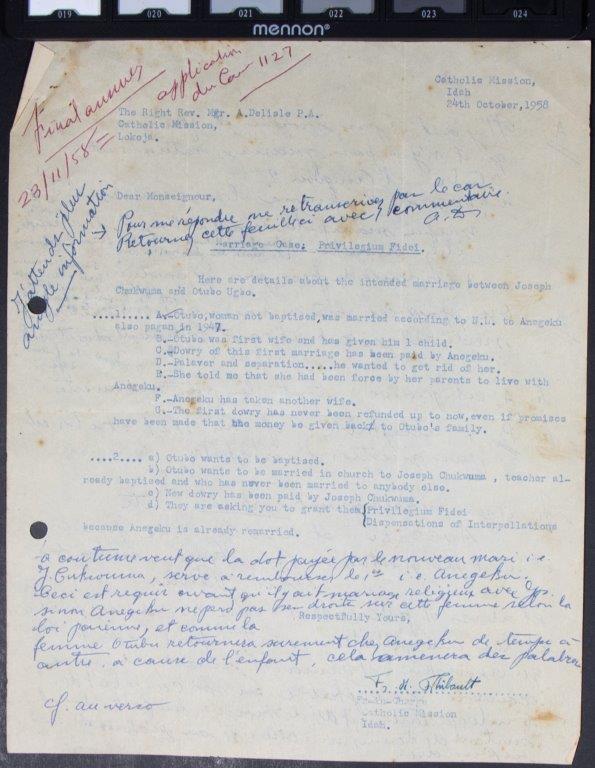 019 020 021 022 023 024
mennon®
Final answer
application
du Can 1127
23/11/58
Catholic Mission,
Idah
24th October,1958
The Right Rev. Mgr. A.Delisle P.A.
Catholic Mission,
Lokoja.
J'attends plus
ample information
Dear Monseigneur,
Pour me répondre me retranscrivez pas le cas
Retournez cette feuille ci avec commentaire.
A.D
Marriage Case: Privilegium Fidei.
Here are details about the intended marriage between Joseph
Chukwuma and Otubo Ugbo.
....1.... A.-Otubo,woman not baptised,was married according to N.L. to Anegeku
also pagan in 1947.
B.-Otubo was first wife and has given him 1 child.
C.-Dowry of this first marriage has been paid by Anegeku.
D.-Palaver and separation.....he wanted to get rid of her.
E.-She told me that she had been force by her parents to live with
Anegeku.
F.-Anegeku has taken another wife.
G.-The first dowry has never been refunded up to now,even if promises
have been made that the money be given back to Otubo's family.
....2.... a) Otubo wants to be baptised.
b) Otubo wants to be married in church to Joseph Chukwuma , teacher al-
ready baptised and who has never been married to anybody else.
c) New dowry has been paid by Joseph Chukwuma.
d) They are asking you to grant them Privilegium Fidei
Dispensations of Interpellations
because Anegeku is already remarried.
La coutume veut que la dot payée par le nouveau mari i.e.
J. Cukwuma, serve à rembourser le 1er i.e. Anegeku.
Ceci est requis avant qu'il y ait mariage religieux avec Jos.
sinon Anegeku ne perd pas ses droits sur cette femme selon la
loi païenne, et comme la
Respectfully Yours,
femme Otubu retournera surement chez Anegeku de temps à
autre à cause de l'enfant, cela amènera des palabres
Fr. H. Thibault
Fr-in-Charge
Catholic Mission
Idah.
cf. au verso